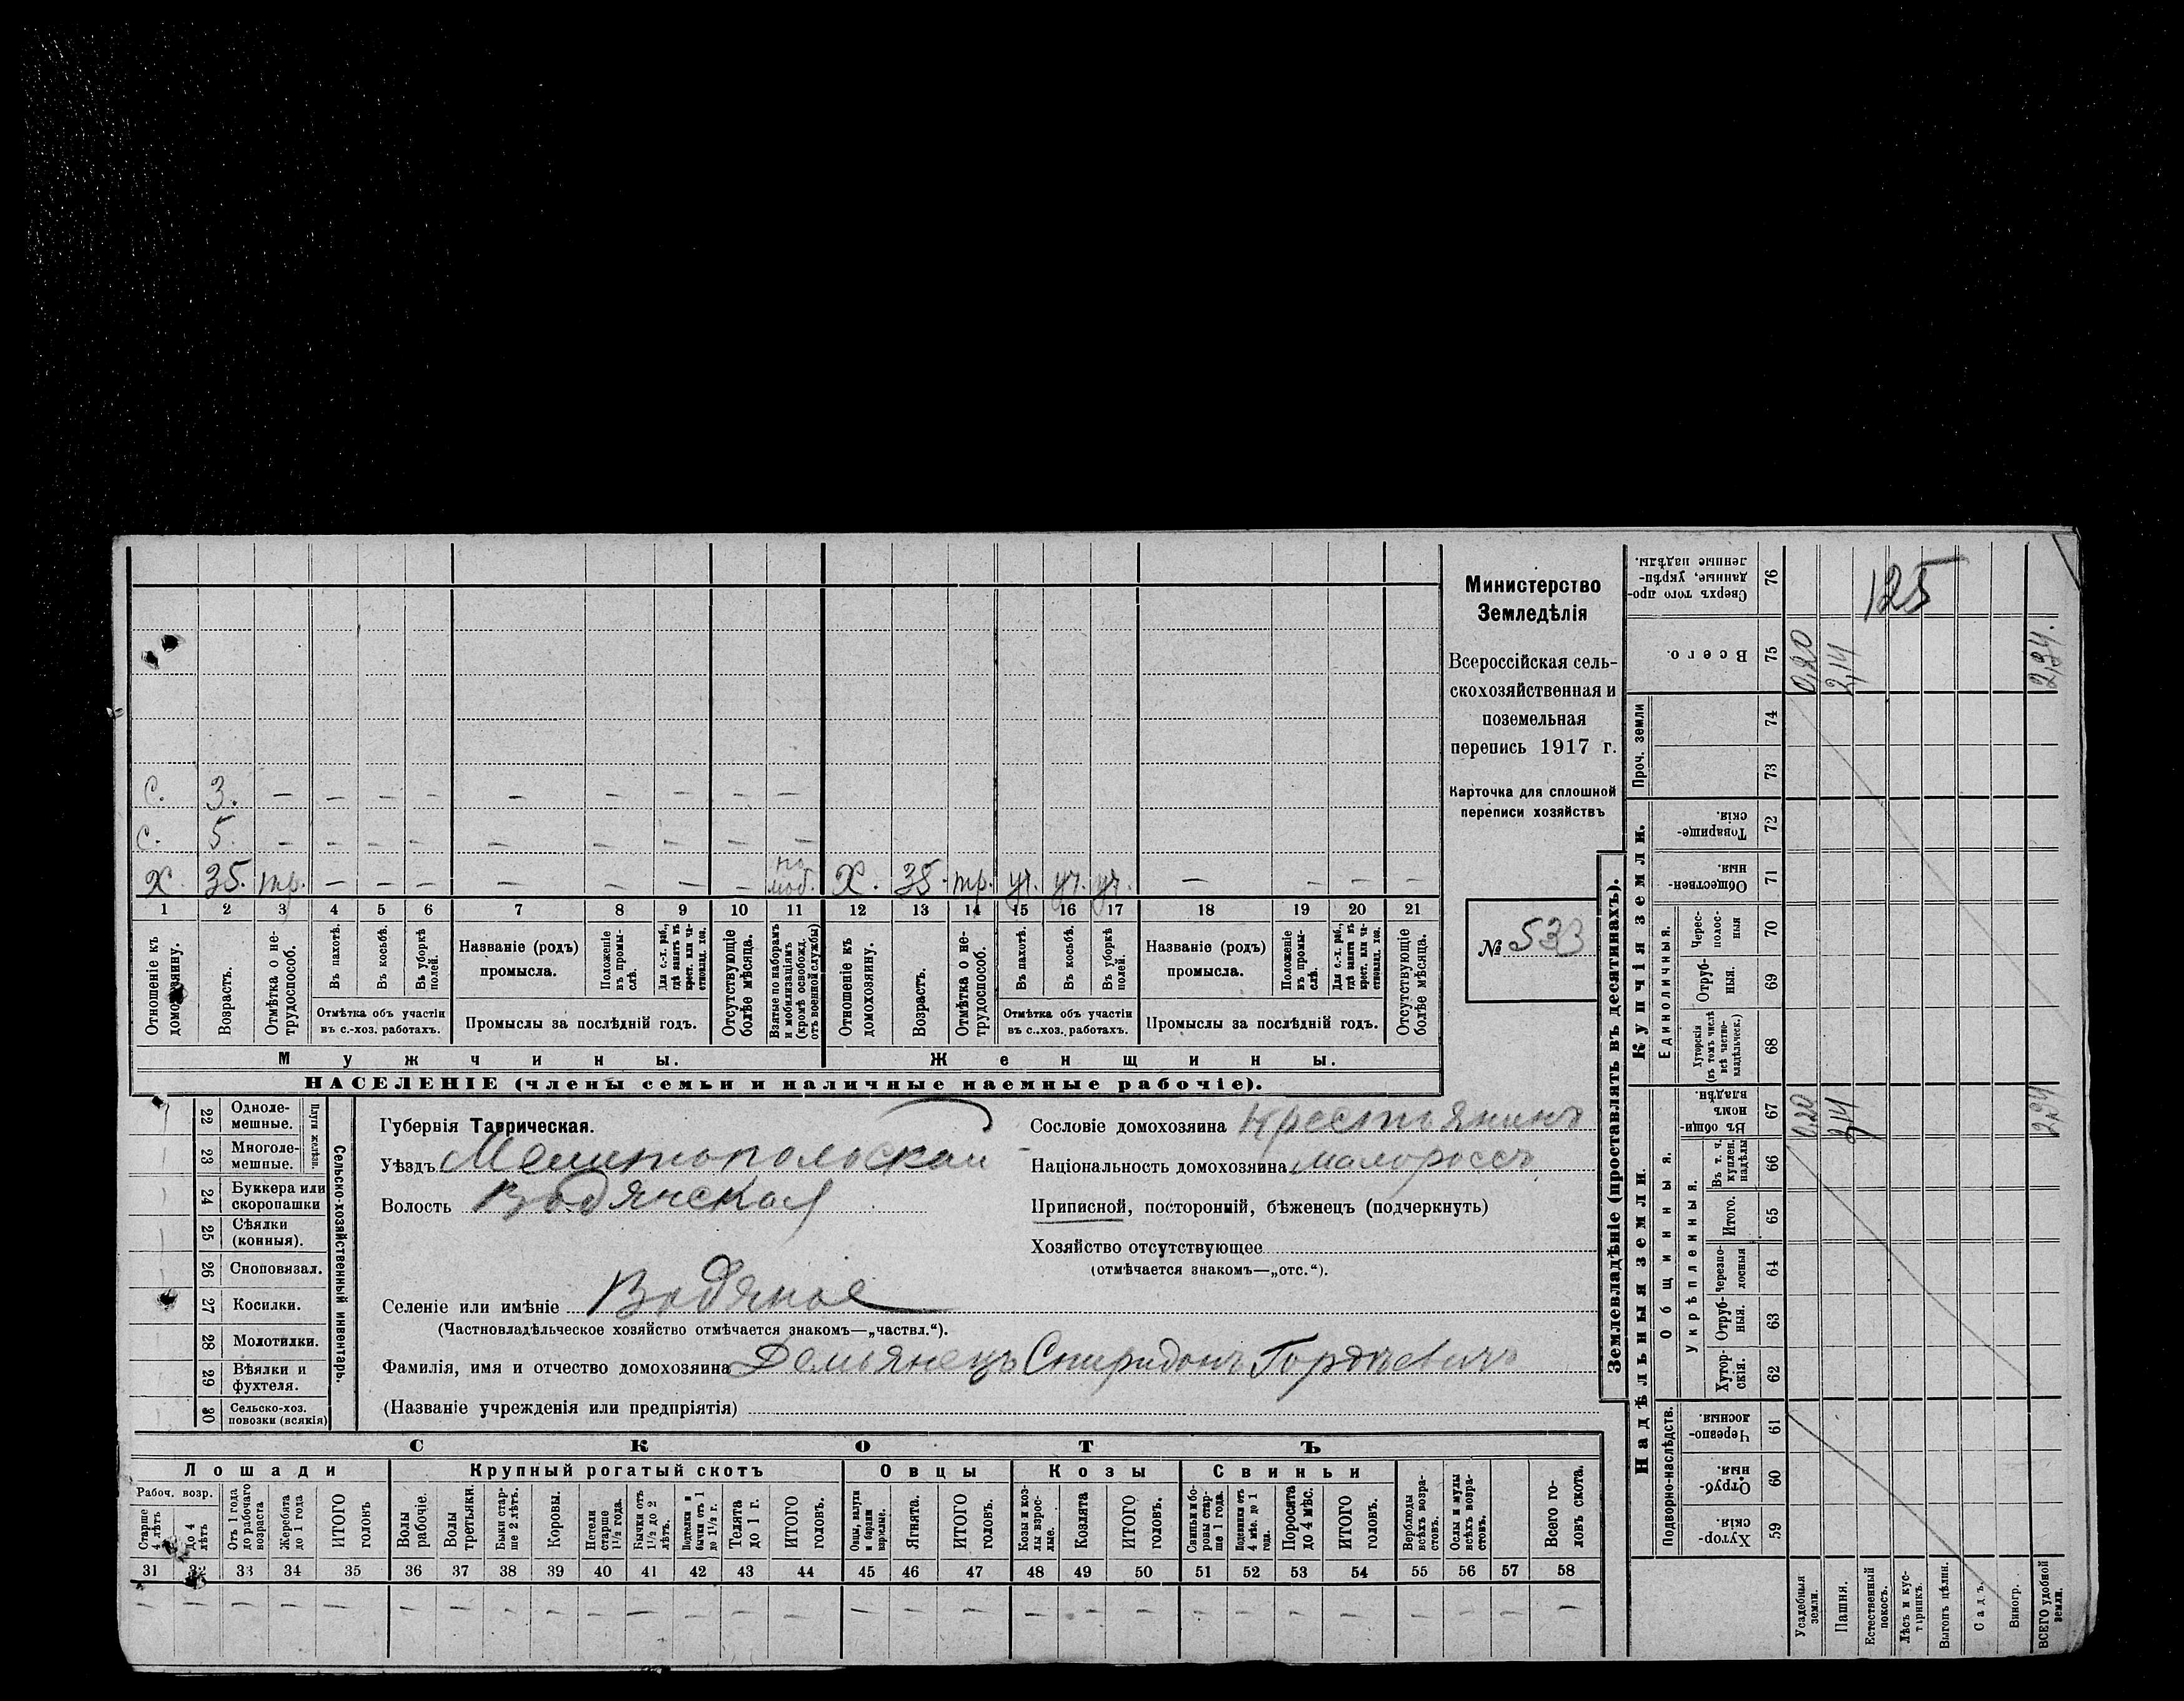 с. 3. — — — — — — — — —
с. 5. — — — — — — — — —
х. 35. тр. — — — — — — — по моб. Х. 35. тр. уч. уч. уч. — — — —
1 2 3 4 5 6 7 8 9 10 11 12 13 14 15 16 17 18 19 20 21
Отношеніе къ домохозяину.
Возрастъ.
Отмѣтка о нетрудоспособ.
Въ пахотѣ.
Въ косьбѣ.
Въ уборкѣ полей.
Отмѣтка объ участіи въ с.-хоз. работахъ.
Названіе (родъ) промысла.
Положеніе въ промыслѣ.
Для с.-х. раб., гдѣ занятъ въ крест. или частновлад. хоз.
Промыслы за послѣдній годъ.
Отсутствующіе болѣе мѣсяца.
Взятые по наборамъ и мобилизаціямъ (кромѣ освобожд. отъ военной службы)
Отношеніе къ домохозяину.
Возрастъ.
Отмѣтка о нетрудоспособ.
Въ пахотѣ.
Въ косьбѣ.
Въ уборкѣ полей.
Отмѣтка объ участіи въ с.-хоз. работахъ.
Названіе (родъ) промысла.
Положеніе въ промыслѣ.
Для с.-х. раб., гдѣ занятъ въ крест. или частновлад. хоз.
Промыслы за послѣдній годъ.
Отсутствующіе болѣе мѣсяца.
Мужчины.
Женщины.
НАСЕЛЕНІЕ (члены семьи и наличные наемные рабочіе).
Министерство
Земледѣлія
Всероссійская сель-
скохозяйственная и
поземельная
перепись 1917 г.
Карточка для сплошной
переписи хозяйствъ
№ 533
22 Одноле-мешные.
23 Многоле-мешные.
Плуги желѣзн.
24 Буккера или скоропашки
25 Сѣялки (конныя).
26 Сноповязал.
27 Косилки.
28 Молотилки.
29 Вѣялки и фухтеля.
30 Сельско-хоз. повозки (всякія)
Сельско-хозяйственный инвентарь.
Губернія Таврическая.
Уѣздъ Мелитопольскій
Волость Водянская
Селеніе или имѣніе Водяное
(Частновладѣльческое хозяйство отмѣчается знакомъ—„частвл.“).
Фамилія, имя и отчество домохозяина Демьянецъ Спиридонъ Гордѣевичъ
(Названіе учрежденія или предпріятія)
Сословіе домохозяина Крестьянинъ
Національность домохозяина малороссъ
Приписной, посторонній, бѣженецъ (подчеркнуть)
Хозяйство отсутствующее
(отмѣчается знакомъ—„отс.“).
СКОТЪ
Лошади
Крупный рогатый скотъ
Овцы
Козы
Свиньи
Рабоч. возр.
Старше 4 лѣтъ
До 4 лѣтъ
Отъ 1 года до рабочаго возраста
Жеребята до 1 года
ИТОГО головъ
Волы рабочіе.
Волы третьяки.
Быки старше 2 лѣтъ.
Коровы.
Нетели старше 1½ года.
Бычки отъ 1½ до 2 лѣтъ.
Подтелки и бычки отъ 1 до 1½ г.
Телята до 1 г.
ИТОГО головъ.
Овцы, валухи и бараны взрослые.
Ягнята.
ИТОГО головъ.
Козы и козлы взрослые.
Козлята
ИТОГО головъ.
Свиньи и боровы старше 1 года.
Подсвинки отъ 4 мѣс. до 1 года.
Поросята до 4 мѣс.
ИТОГО головъ.
Верблюды всѣхъ возрастовъ.
Ослы и мулы всѣхъ возрастовъ.
Всего головъ скота.
31 32 33 34 35 36 37 38 39 40 41 42 43 44 45 46 47 48 49 50 51 52 53 54 55 56 57 58
Землевладѣніе (проставлять въ десятинахъ).
Надѣльныя земли.
Купчія земли.
Проч. земли
Подворно-наслѣдств.
Общинныя.
Укрѣпленныя.
Единоличныя.
59 Хутор-скія.
60 Отруб-ныя.
61 Черезпо-лосныя.
62 Хутор-скія.
63 Отруб-ныя.
64 Черезпо-лосныя
65 Итого.
66 Въ т. ч. куплен. надѣлы
67 Въ общинномъ владѣн.
68 Хуторскія (въ томъ числѣ всѣ частно-владѣльческ.)
69 Отруб-ныя.
70 Черес-полос-ныя
71 Обществен-ныя.
72 Товарище-скія.
73
74
75 Всего.
76 Сверхъ того проданные, укрѣпленные надѣлы.
Усадебныя земли. 0,20 0,20
Пашня. 2,14 2,14
Естественный покосъ.
Лѣсъ и кустарникъ.
Выгонъ цѣлин.
Садъ.
Виногр.
ВСЕГО удобной земли. 2,34 2,34.
125